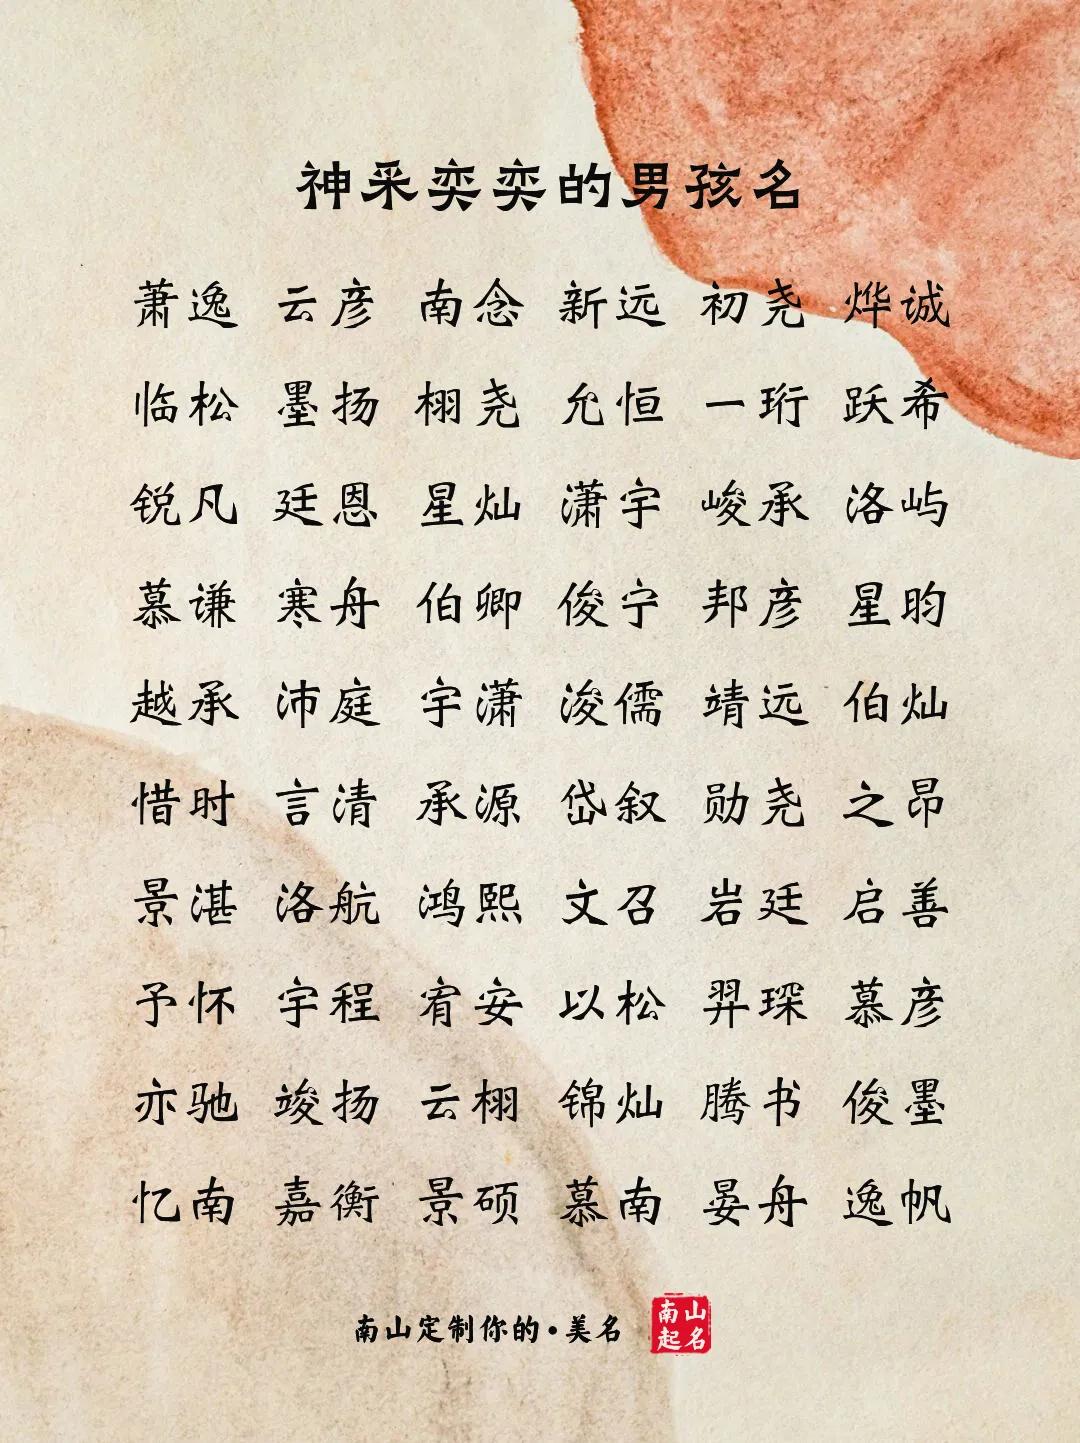 神采奕奕的男孩名
萧逸 云彦 南念 新远 初尧 烨诚
临松 墨扬 栩尧 允恒 一珩 跃希
锐凡 廷恩 星灿 潇宇 峻承 洛屿
慕谦 寒舟 伯卿 俊宁 邦彦 星昀
越承 沛庭 宇潇 浚儒 靖远 伯灿
惜时 言清 承源 岱叙 勋尧 之昂
景湛 洛航 鸿熙 文召 岩廷 启善
予怀 宇程 宥安 以松 羿琛 慕彦
亦驰 竣扬 云栩 锦灿 腾书 俊墨
忆南 嘉衡 景硕 慕南 晏舟 逸帆
南山定制你的·美名
南山
起名